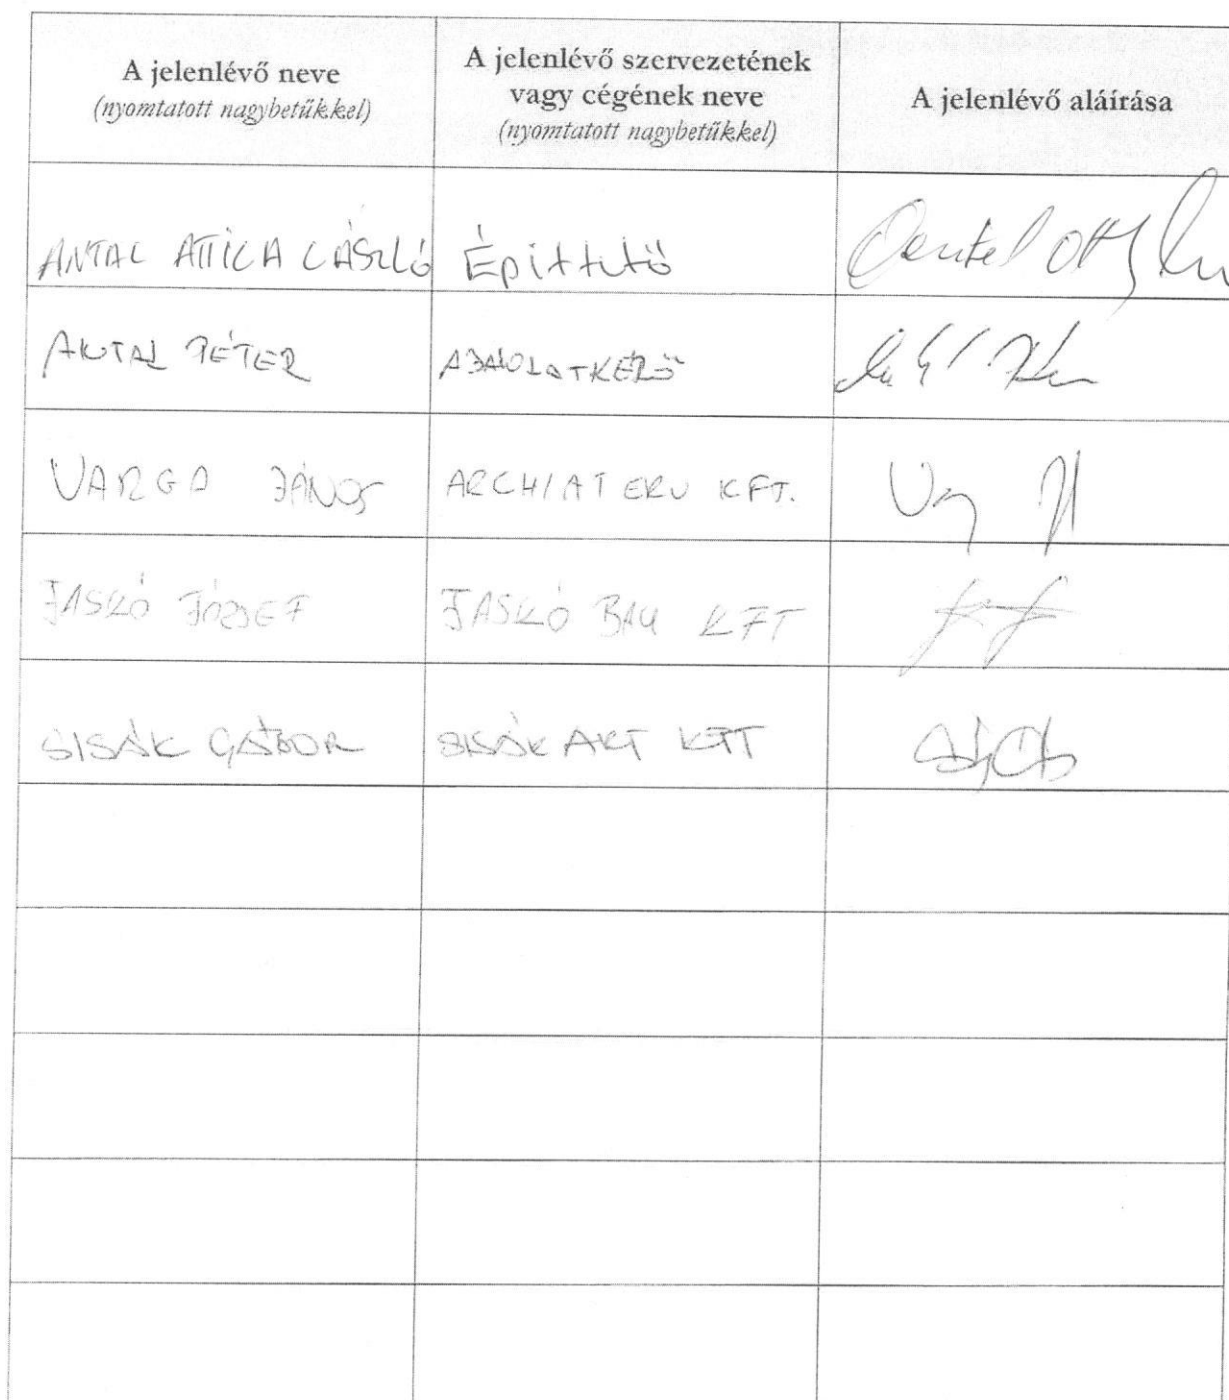 A jelenlévő neve
(nyomtatott nagybetűkkel)
A jelenlévő szervezetének
vagy cégének neve
(nyomtatott nagybetűkkel)
A jelenlévő aláírása
ANTAL ATTILA LÁSZLÓ Építtető
ANTAL PÉTER AJÁNLATKÉRŐ
VARGA JÁNOS ARCHIATERV KFT.
JASKÓ JÓZSEF JASKÓ BAU KFT
SISÁK GÁBOR SISÁK ART KFT